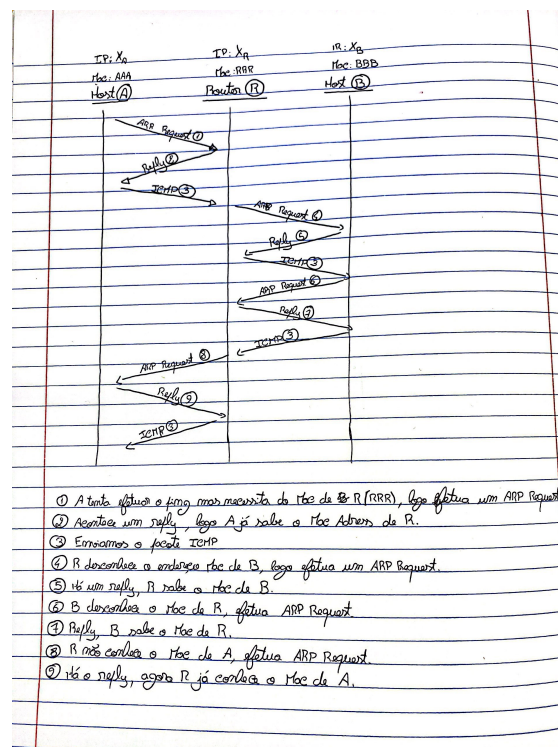 IP: XA IP: XR IR: XB
Mac: AAA Mac: RRR Mac: BBB
Host A Router R Host B
ARP Request ①
Reply ②
ICMP ③
ARP Request ④
Reply ⑤
ICMP ③
ARP Request ⑥
Reply ⑦
ICMP ③
ARP Request ⑧
Reply ⑨
ICMP ③
① A tenta efetuar o ping mas necessita do Mac de R (RRR), logo efetua um ARP Request
② Acontece um reply, logo A já sabe o Mac Adress de R.
③ Enviamos o pacote ICMP
④ R desconhece o endereço Mac de B, logo efetua um ARP Request.
⑤ Há um reply, R sabe o Mac de B.
⑥ B desconhece o Mac de R, efetua ARP Request.
⑦ Reply, B sabe o Mac de R.
⑧ R não conhece o Mac de A, efetua ARP Request.
⑨ Há o reply, agora R já conhece o Mac de A.